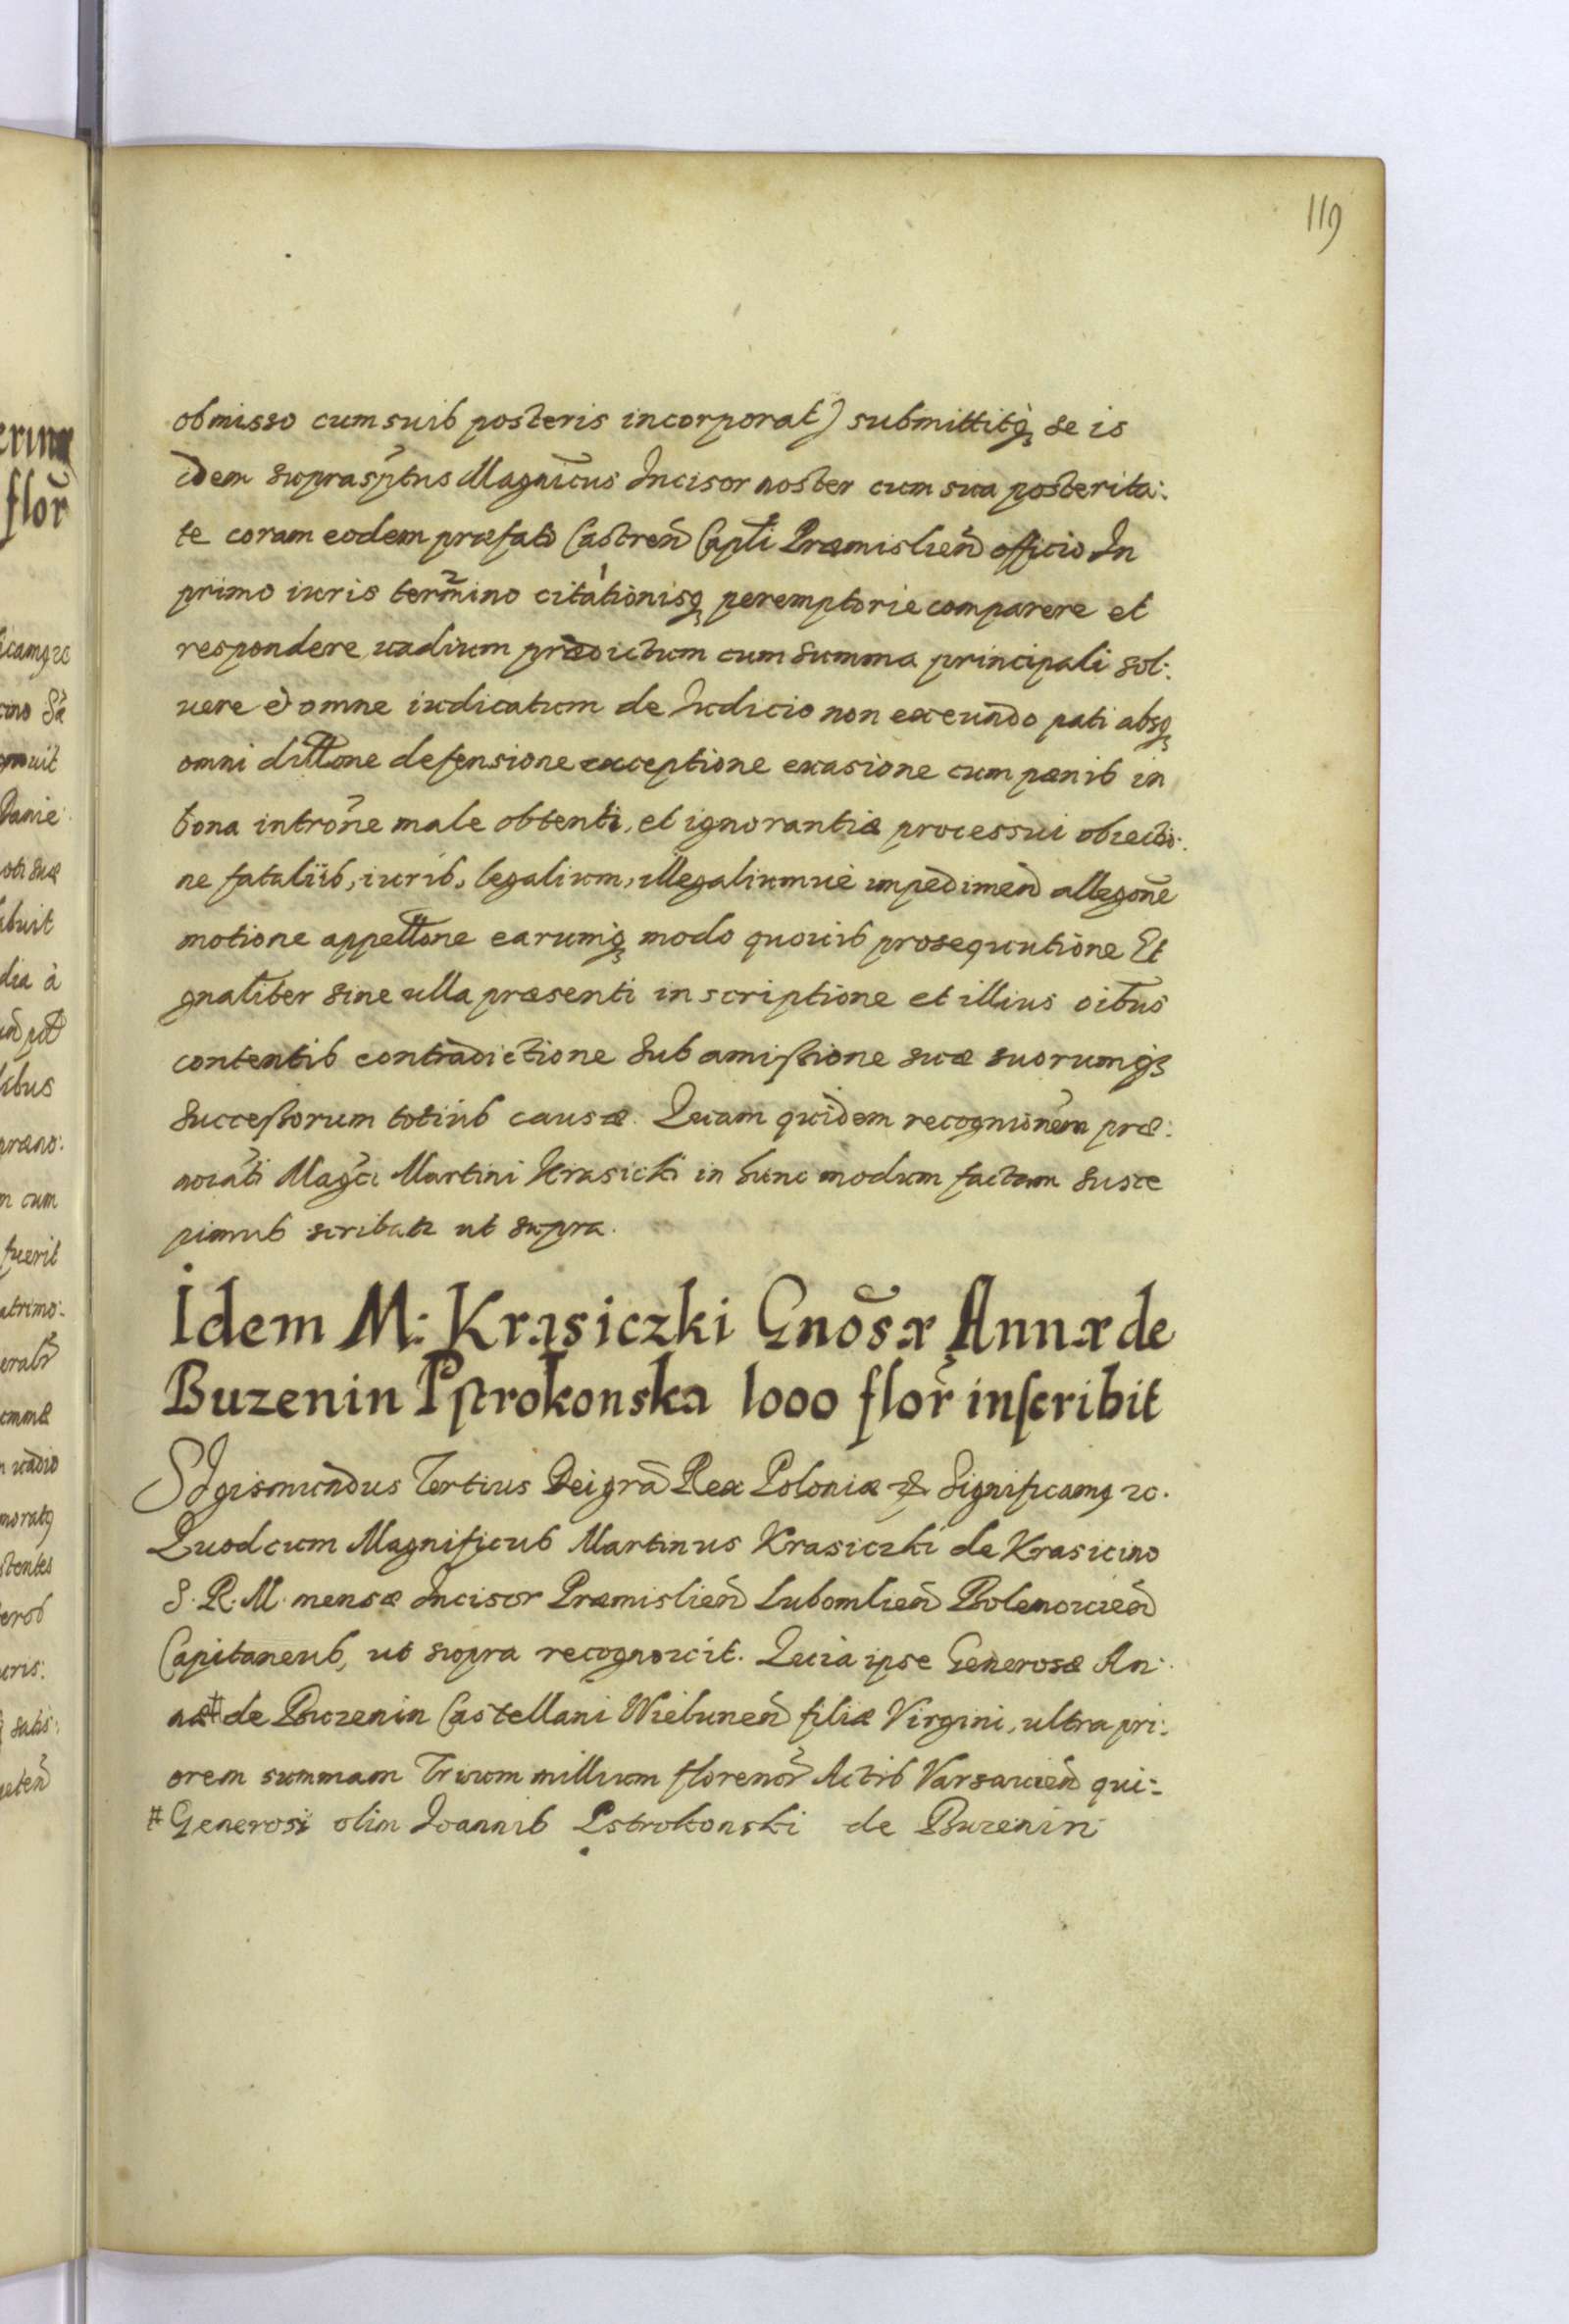 119
obmisso cum suis posteris incorporat) submittitq₃ se is
idem suprasptus Magnicus Incisor noster cum sua posterita:
te coram eodem præfato Castreñ Capłi Præmislieñ officio In
primo iuris termino citationisq₃ peremptorie comparere et
respondere vadium prædictum cum summa principali sol:
uere et omne iudicatum de Iudicio non exeundo pati absq₃
omni dillone defensione exceptione euasione cum pænis in
bona introne male obtenti, et ignorantiæ processui obiectio:
ne fatalijs, iuris, legalium, illegaliumue impedimeñ allegone
motione appellone earumq₃ modo quouis prosequutione Et
gnaliter sine ulla præsenti inscriptione et illius oibus
contentis contradictione sub amissione suæ suorumq₃
successorum totius causæ. Quam quidem recognionem præ:
noiati Magci Martini Krasicki in hunc modum factam susce
pimus scribati ut supra.
Idem M: Krasiczki Gnosæ Annæ de
Buzenin Pstrokonska 1000 flor inscribit
Sigismundus Tertius Dei gra Rex Poloniæ & Significamq 2c.
Quod cum Magnificus Martinus Krasiczki de Krasicino
S. R. M. mensæ Incisor Præmislieñ Lubomlieñ Bolemowieñ
Capitaneus, ut supra recognoscit. Quia ipse Generosæ An:
næ# de Buzenin Castellani Wieluneñ filiæ Virgini, ultra pri:
orem summam Trium millium florenor Actis Varsauieñ qui:
# Generosi olim Ioannis Pstrokonski de Buzenin